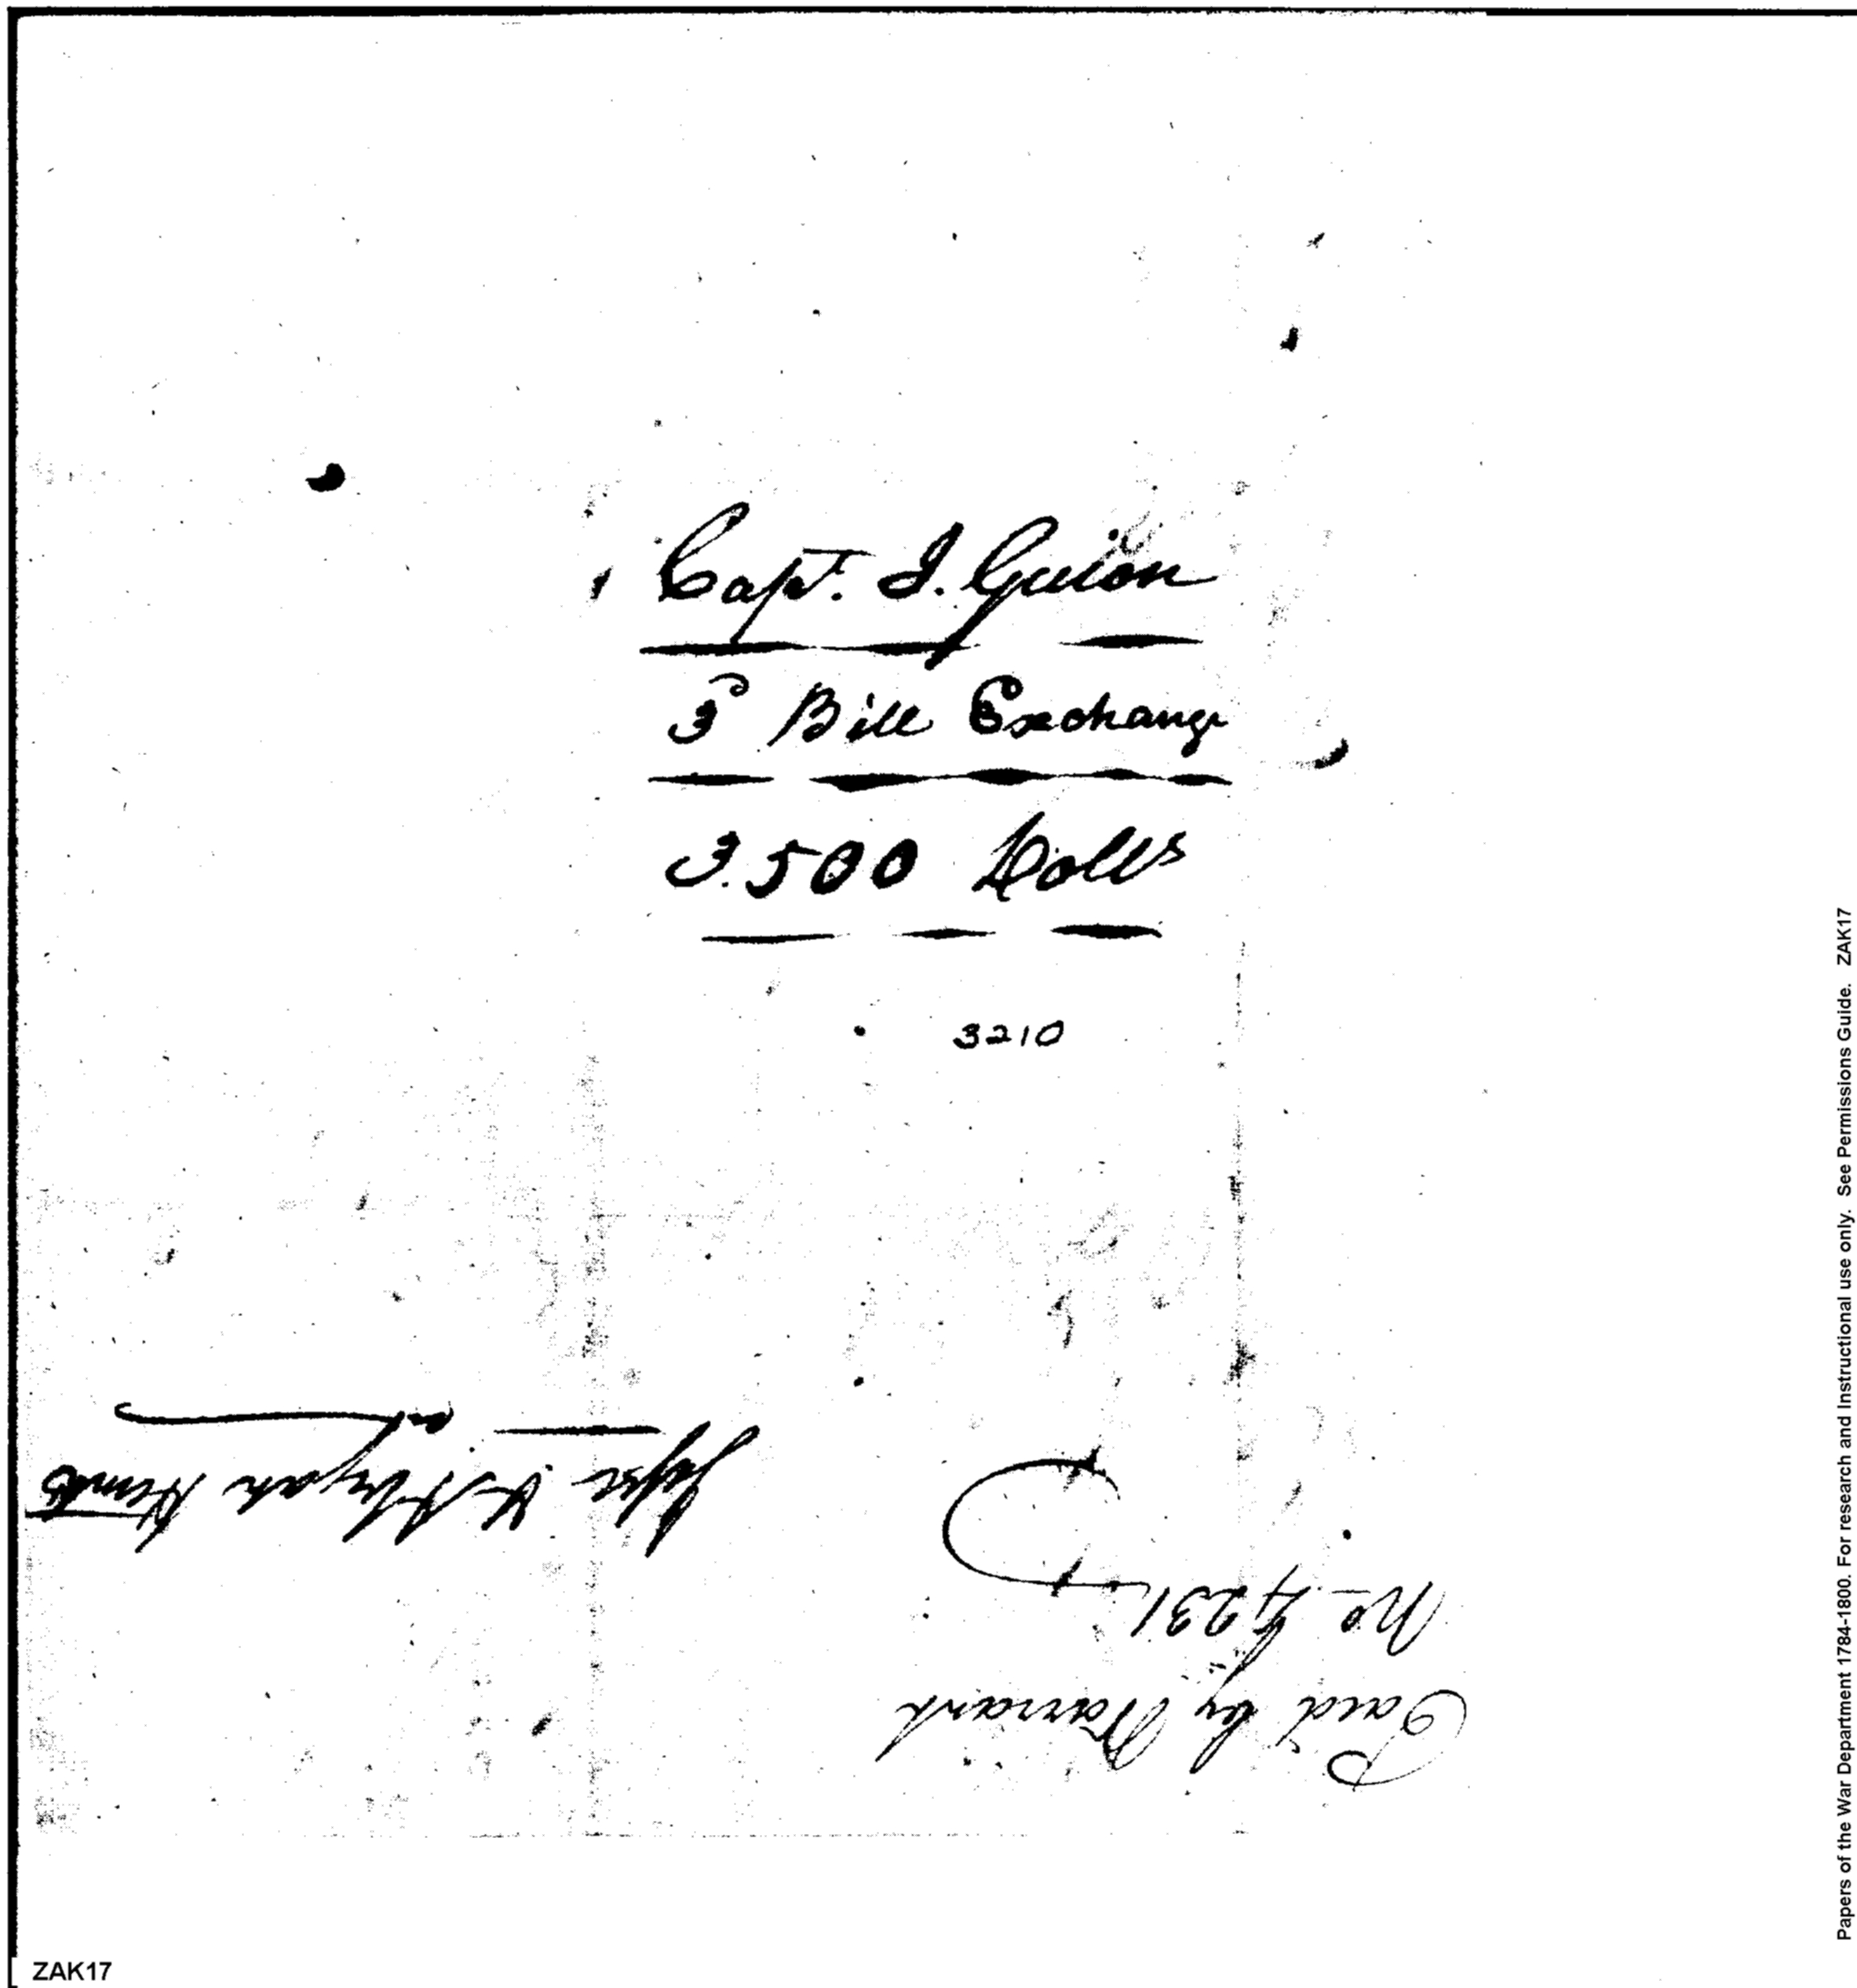 Capt. I. Guion
3d Bill Exchange
3.500 Dolls
3210
Jesse & Abijah Hunt
Paid by Warrant
No 4231
Papers of the War Department 1784-1800. For research and Instructional use only. See Permissions Guide. ZAK17
ZAK17